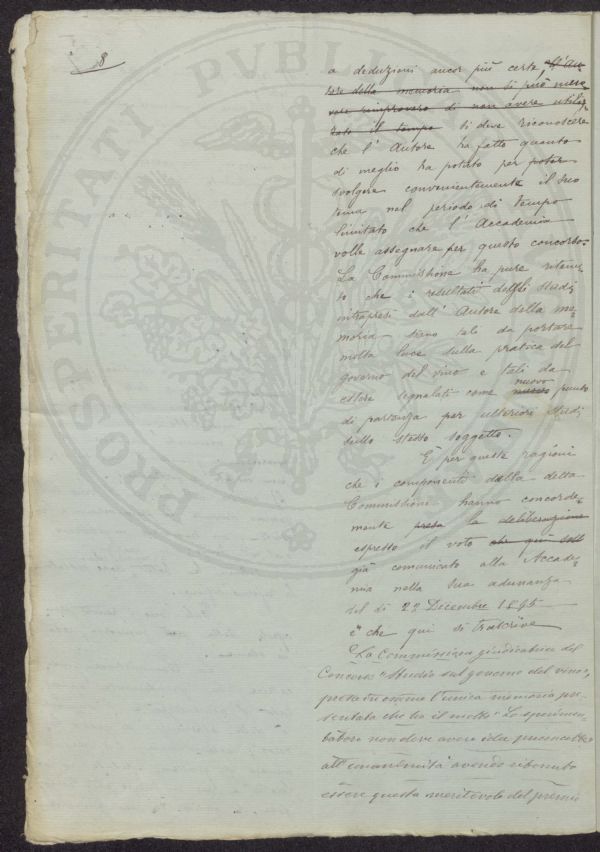 8
a deduzioni ancor più certe, ~~L'Au-~~
~~tore della memoria non si può muo-~~
~~vere rimprovero di non avere utiliz-~~
~~zato il tempo~~ si deve riconoscere
che l'Autore ha fatto quanto
di meglio ha potuto per ~~poter~~
svolgere convenientemente il suo
tema nel periodo di tempo
limitato che l'Accademia
volle assegnare per questo concorso.
La Commissione ha pure ritenu-
to che i resultati degli studi
intrapresi dall'Autore della me-
moria siano tali da portare
molta luce sulla pratica del
governo del vino e tali da
essere segnalati come nuovo punto
di partenza per ulteriori studi
sullo stesso soggetto.
È per queste ragioni
che i componenti della detta
Commissione hanno concorde-
mente ~~presa~~ la ~~deliberazione~~
espresso il voto ~~che qui sotto~~
già comunicato alla Accade-
mia nella sua adunanza
del dì 22 Decembre 1895
e che qui si trascrive
"La Commissione giudicatrice del
Concorso "Studio sul governo del vino",
presa in esame l'unica memoria pre-
sentata che ha il motto "Lo sperimen-
tatore non deve avere idee preconcette"
all'unanimità avendo ritenuto
essere questa meritevole del premio
PROSPERITATI PUBLICAE